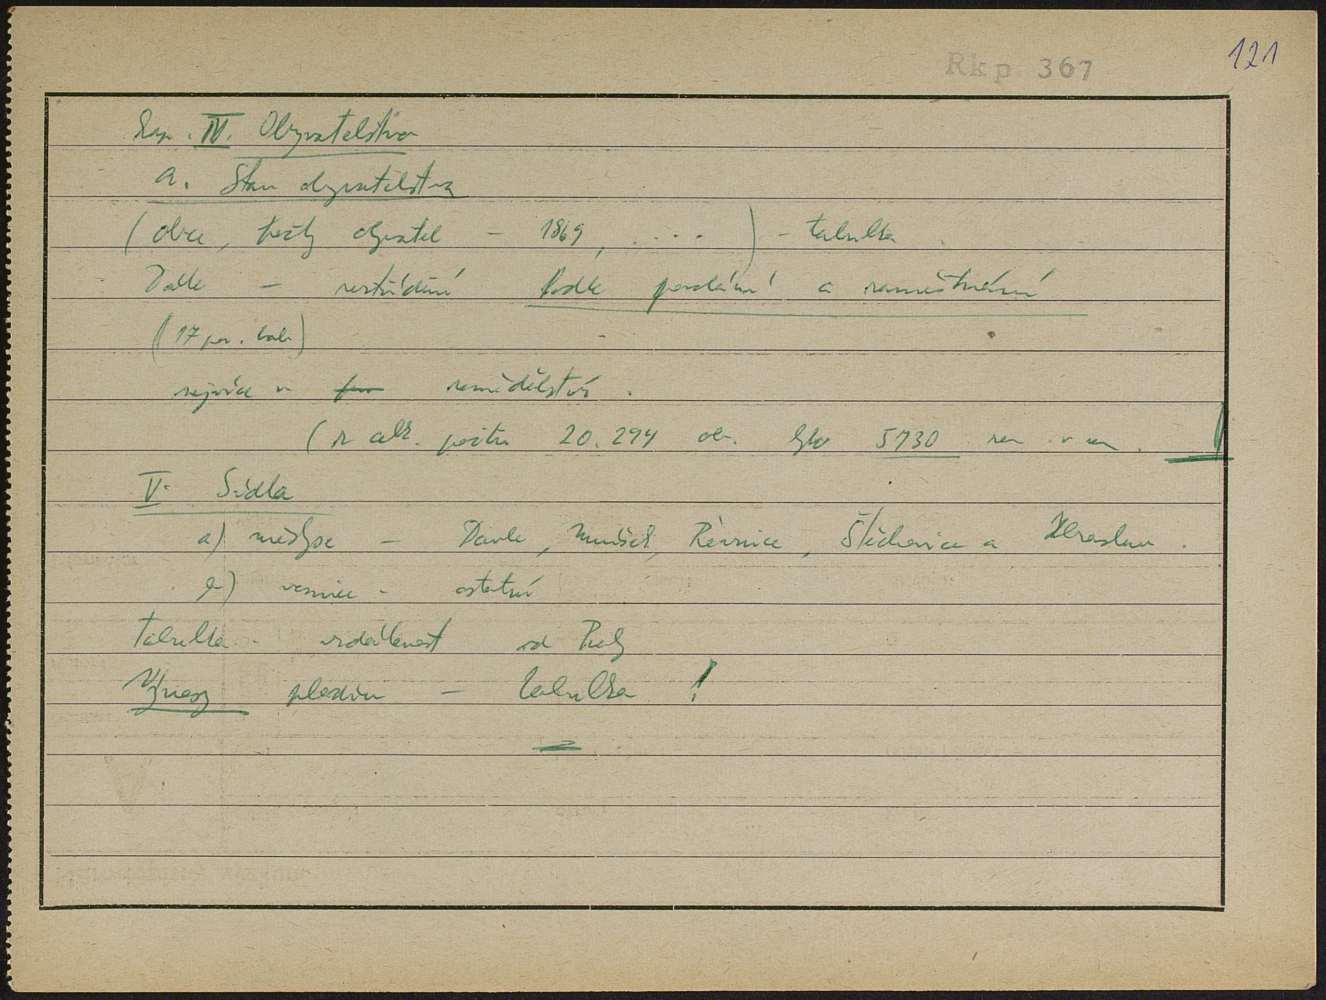 Rkp 367
121
Kap. IV. Obyvatelstvo
a. Stav obyvatelstva
(obce, počty obyvatel - 1869, ....) - tabulka
Dále - roztřídění podle povolání a zaměstnání
(17 pov. tab.)
nejvíce v zemědělství.
(z celk. počtu 20.294 ob. bylo 5730 v
V. Sídla
a) městyse - Davle, Mníšek, Řevnice, Štěchovice a Zbraslav.
b) vesnice - ostatní
tabulka - vzdálenost od Prahy
Výnosy plodin - tabulka !